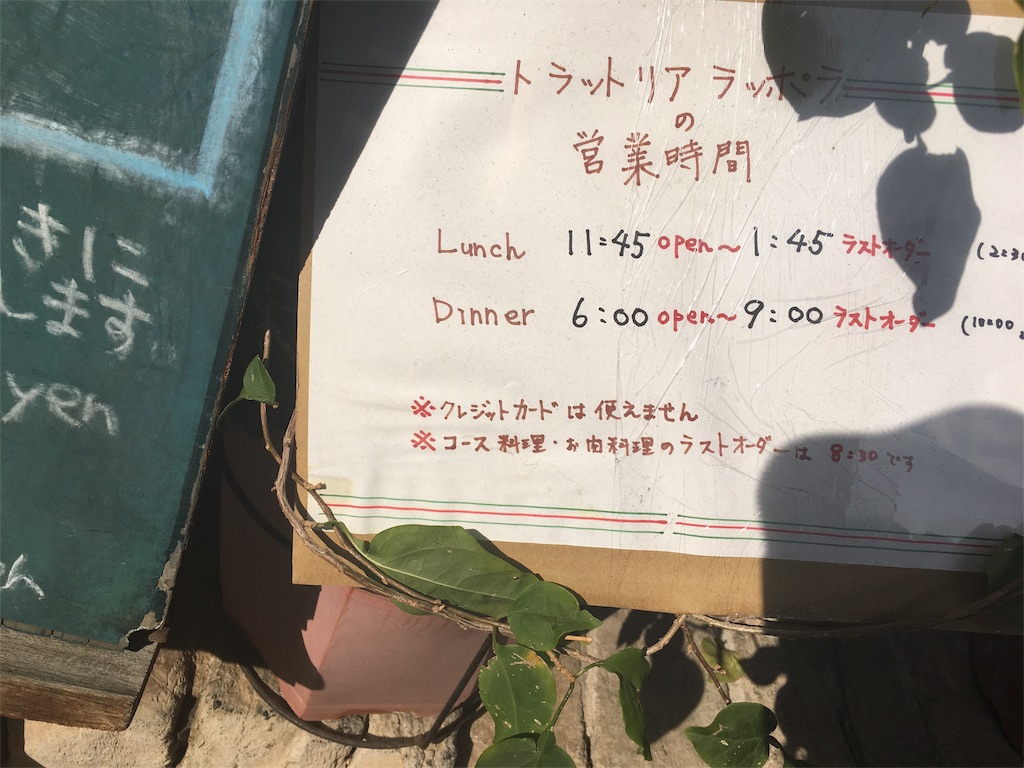 トラットリア ラッポラ
の
営業時間
Lunch 11:45 open〜1:45 ラストオーダー (2:30
Dinner 6:00 open〜9:00 ラストオーダー (10:00
※クレジットカードは使えません
※コース料理・お肉料理のラストオーダーは 8:30です
きに
します。
yen